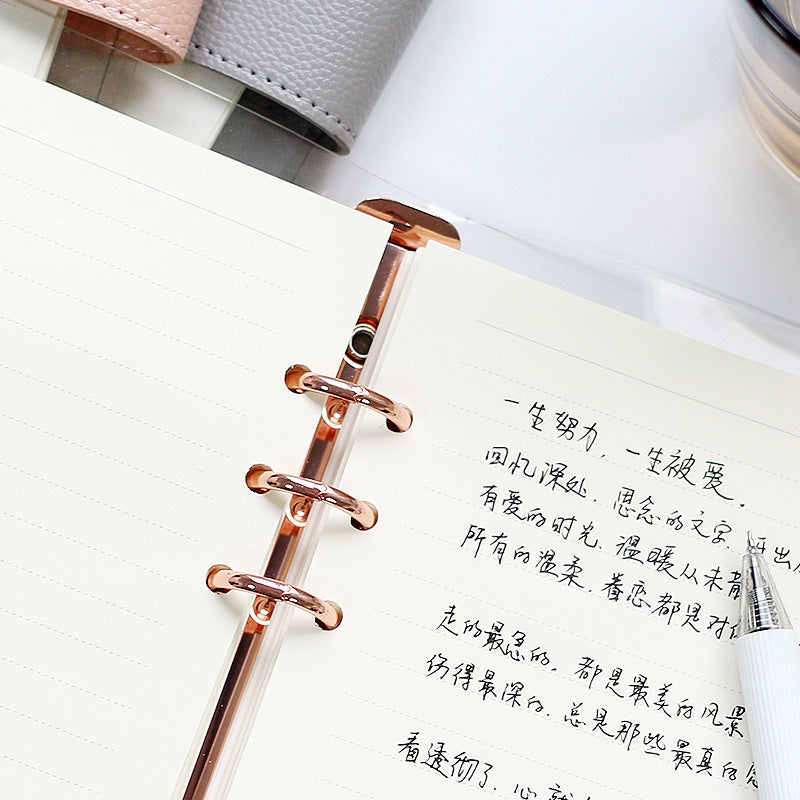 一生努力，一生被爱.
回忆深处.思念的文字.开出
有爱的时光.温暖从未
所有的温柔.眷恋都是对
走的最急的，都是最美的风景
伤得最深的.总是那些最真的
看透彻了.心就